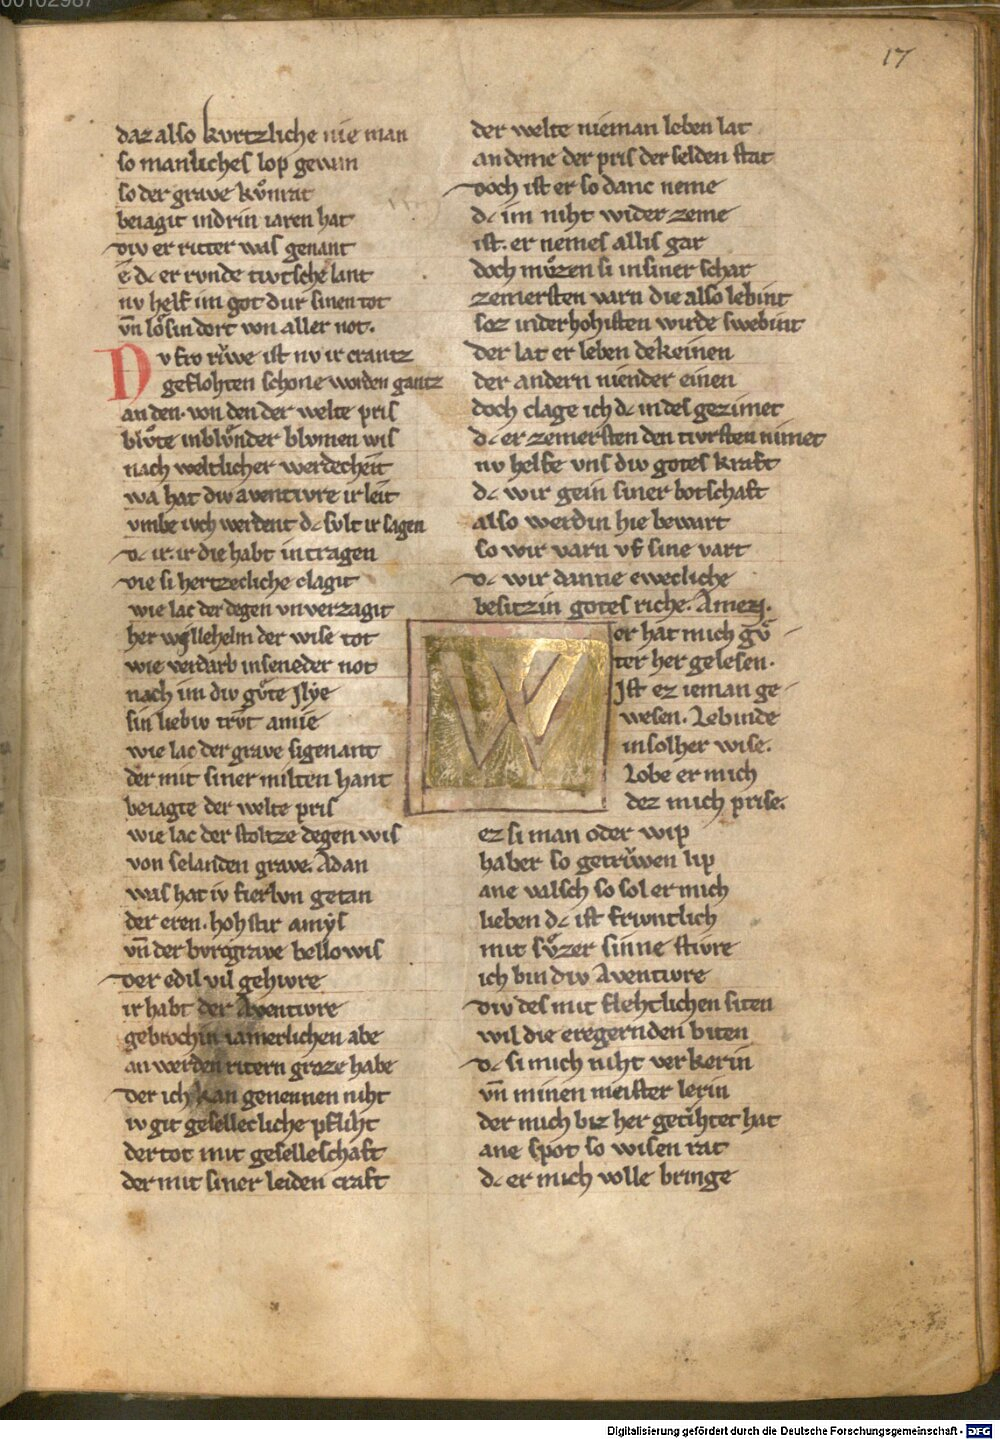 17
daz also kvrtzliche nie man
so manliches lop gewan
so der grave kv̊nrat
beiagit indrin iaren hat
div er ritter was genant
e dc er rvnde tivtsche lant
nv helf im got dur sinen tot
vn̄ lo̊sin dort von aller not.
Nv fro rv̊we ist nv ir crantz
geflohten schone worden gantz
an den. von den der welte pris
blv̊te inblv̊nder blvmen wis
nach weltlicher werdecheit
wa hat div aventivre ir leit
vmbe ivch werdent dc svlt ir sagen
dc ir. ir die habt in tragen
die si hertzecliche clagit
wie lac der degen vnverzagit
her willehelm der wise tot
wie verdarb inseneder not
nach im div gv̊te Jlẏe
sin liebiv trv̊t amie
wie lac der grave sigenant
der mit siner milten hant
beiagte der welte pris
wie lac der stoltze degen wis
von selanden grave. Adan
was hat iv fierlvn getan
der eren. hohstir amẏs
vn̄ der bvrgrave bellowis
der edil vil gehivre
ir habt der Aventivre
gebrochin iamerlichen abe
an werden ritern groze habe
der ich kan genennen niht
iv git gesellecliche pfliht
der tot mit geselleschaft
der mit siner leiden craft
der welte nieman leben lat
an deme der pris der selden stat
doch ist er so danc neme
dc im niht wider zeme
ist. er nemes allis gar
doch mv̊zen si insiner schar
zemersten varn die also lebint
soz inderhohisten wirde swebint
der lat er leben dekeinen
der andern niender einen
doch clage ich dc indes gezimet
dc er zemersten den tivrsten nimet
nv helfe vns div gotes kraft
dc wir gein siner botschaft
also werdin hie bewart
so wir varn vf sine vart
dc wir danne ewecliche
besitzin gotes riche. Amen.
Wer hat mich gv̊
ter her gelesen.
Jst ez ieman ge
wesen. Lebinde
insolher wise.
Lobe er mich
dez mich prise.
ez si man oder wip
haber so getrv̊wen lip
ane valsch so sol er mich
lieben dc ist frivntlich
mit sv̊zer sinne stivre
ich bin div Aventivre
div des mit flehtlichen siten
wil die eregernden biten
dc si mich niht verkerin
vn̄ minen meister lerin
der mich biz her getihtet hat
ane spot so wisen rat
dc er mich volle bringe
Digitalisierung gefördert durch die Deutsche Forschungsgemeinschaft - DFG